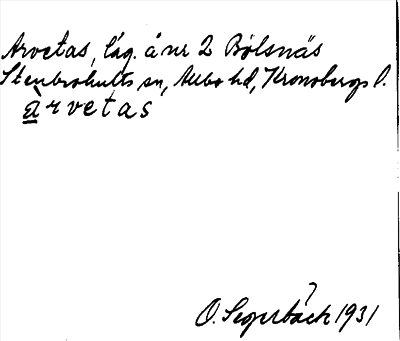 Arvetas, läg. å nr 2 Bölsnäs
Stenbrohults sn, Allbo hd, Kronobergs l.
àrvetas
O. Segerbäck 1931